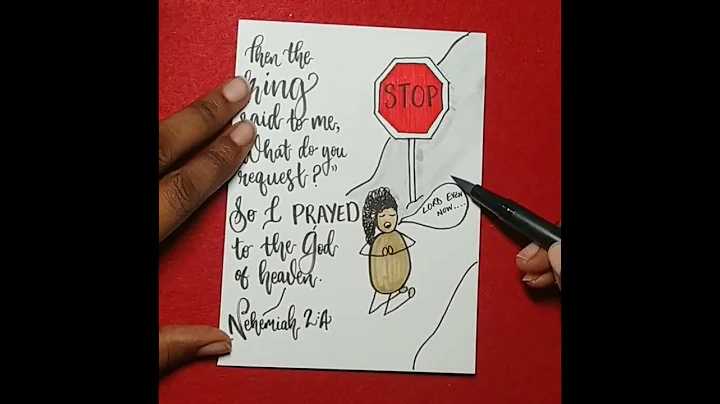 Then the
king
said to me,
What do you
request?"
So I PRAYED
to the God
of heaven.
Nehemiah 2:4
STOP
LORD EVEN
NOW....